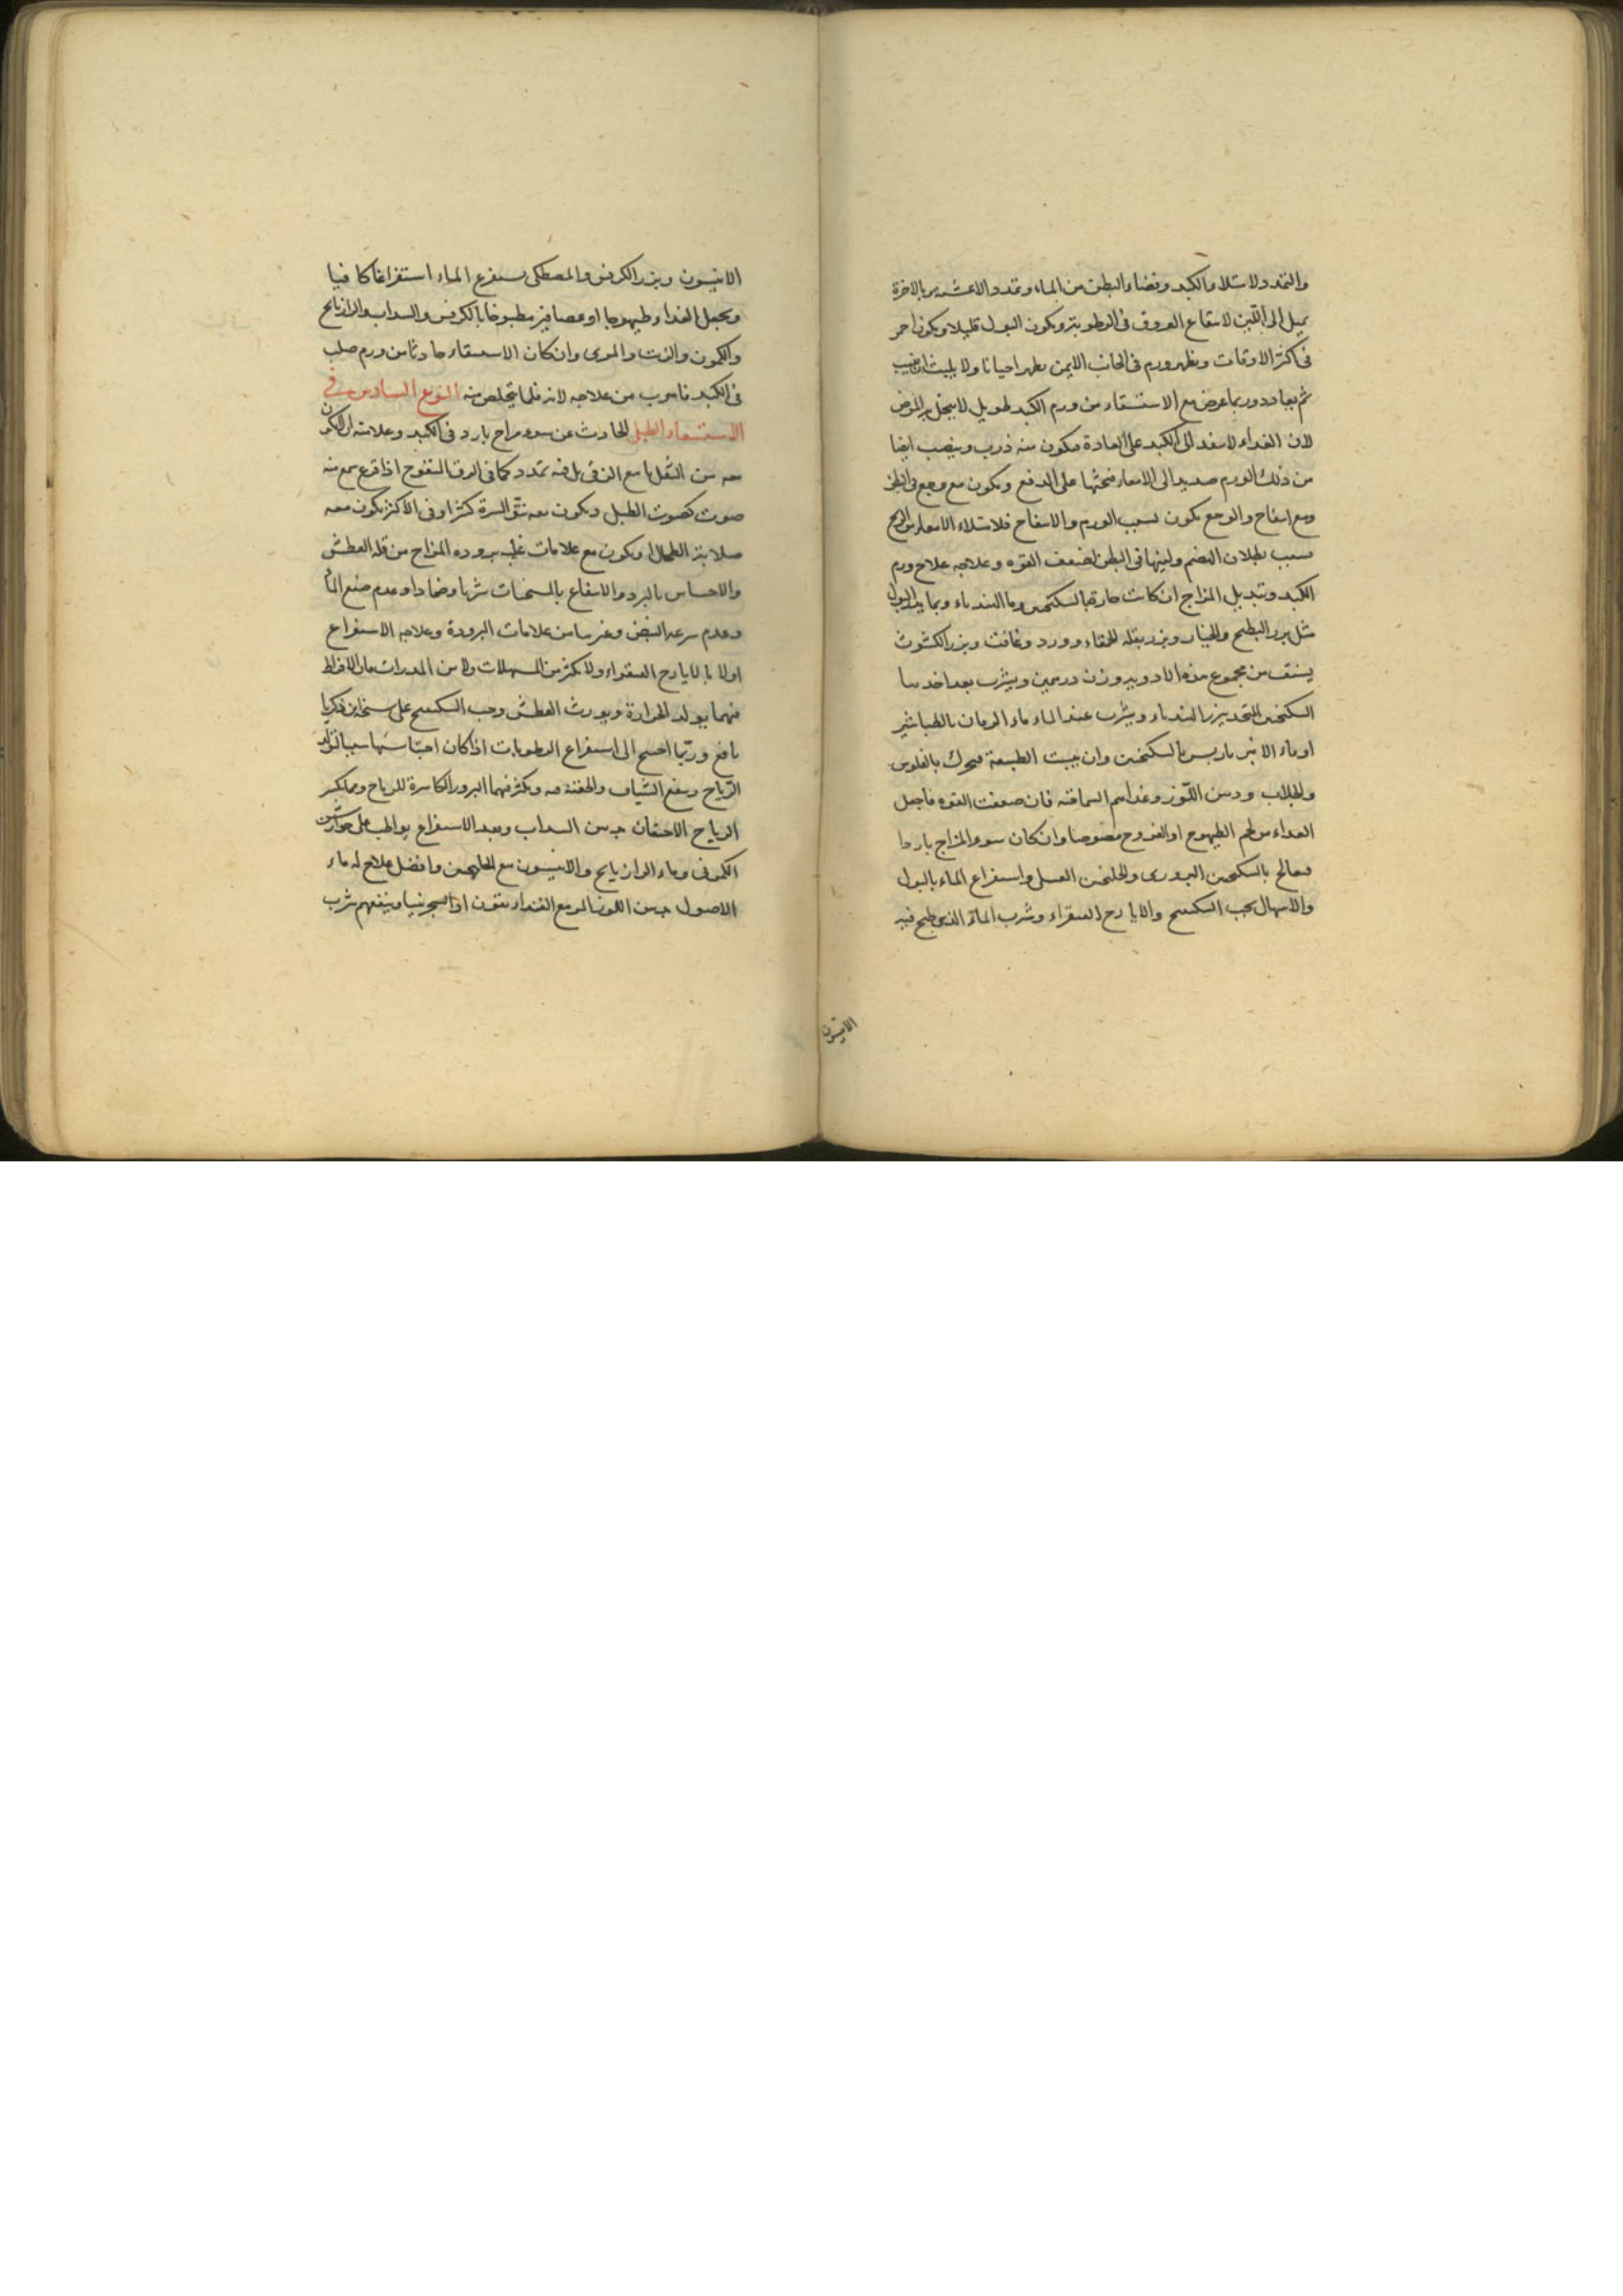 والتمدد لامتلاء الكبد وفضاء البطن من الماء وتمدد الاغشية وبالاخرة
يميل الى اللين لانتقاع العروق فى الرطوبة ويكون البول قليلا ويكون احمر
فى اكثر الاوقات ويظهر ورم فى الجانب الايمن يظهر احيانا ولا يلبث ان يغيب
ثم يعاود وربما عرض مع الاستسقاء من ورم الكبد طويل
لان الغداء لا ينفد الى الكبد على العادة فيكون منه ذرب وينصب ايضا
من ذلك الورم صديد الى الامعاء فيحثها على الدفع ويكون مع وجع فى البطن
ومع انتفاخ والوجع يكون بسبب الورم والانتفاخ فلامتلاء الامعاء من الريح
بسبب بطلان الهضم ولبثها فى البطن لضعف القوة وعلاجه علاج ورم
الكبد وتبديل المزاج ان كانت حارة بالسكنجبين وماء الهندباء وبما يدر البول
مثل بزر البطيخ والخيار وبزر بقلة الحمقاء وورد وغافت وبزر الكشوث
يستف من مجموع هذه الادوية وزن درهمين ويشرب بعد اخدها
السكنجبين المتخد ببزر الهندباء ويشرب عند الماء ماء الرمان بالطباشير
او ماء الانبرباريس بالسكنجبين وان يبست الطبيعة فيحرك بالفلوس
والجلاب ودهن اللوز وغداهم السماقية فان ضعفت القوة فاجعل
الغداء من لحم الطيهوج او الفروج مصوصا وان كان سوء المزاج باردا
فعالج بالسكنجبين البزورى والجلنجبين العسلى واستفراغ الماء بالبول
والاسهال بحب السكبينج والايارج الفيقراء وشرب الماء الذى طبخ فيه
الانيسون
الانيسون وبزر الكرفس والمصطكى يستفرغ الماء استفراغا كافيا
ويجعل الغداء طيهوجا او عصافير مطبوخا بالكرفس والسداب والرازيانج
والكمون والزيت والمرى وان كان الاستسقاء حادثا من ورم صلب
فى الكبد فاهرب من علاجه لانه قلما يتخلص منه النوع السادس فى
الاستسقاء الطبلى الحادث عن سوء مزاج بارد فى الكبد وعلامته ان لا يكون
معه من الثقل ما مع الزقى بل فيه تمدد كما فى الزق المنفوخ اذا قرع سمع منه
صوت كصوت الطبل ويكون معه نتو السرة كثيرا وفى الاكثر يكون معه
صلابة الطحال ويكون مع علامات غلبة برودة المزاج من قلة العطش
والاحساس بالبرد والانتفاع بالمسخنات شربا وضمادا وعدم صبغ الماء
وعدم سرعة النبض وغيرها من علامات البرودة وعلاجه الاستفراغ
اولا بالايارج الفيقراء ولا يكثر من المسهلات ولا من المدرات فان الافراط
فيهما يولد الحرارة ويورث العطش وحب السكبينج على نسخة ابن زكريا
نافع وربما احتيج الى استفراغ الرطوبات اذا كان احتباسها سببا لتولد
الرياح وينفع الشياف والحقنة فيه ويكثر فيهما البزور الكاسرة للرياح ومما يكسر
الرياح الاحتقان بدهن السداب وبعد الاستفراغ يواظب على جوارشن
الكمونى وماء الرازيانج والانيسون مع الجلنجبين وافضل علاج له ماء
الاصول بدهن اللوز المر مع القنداريقون او السجرنيا وينفعهم شرب